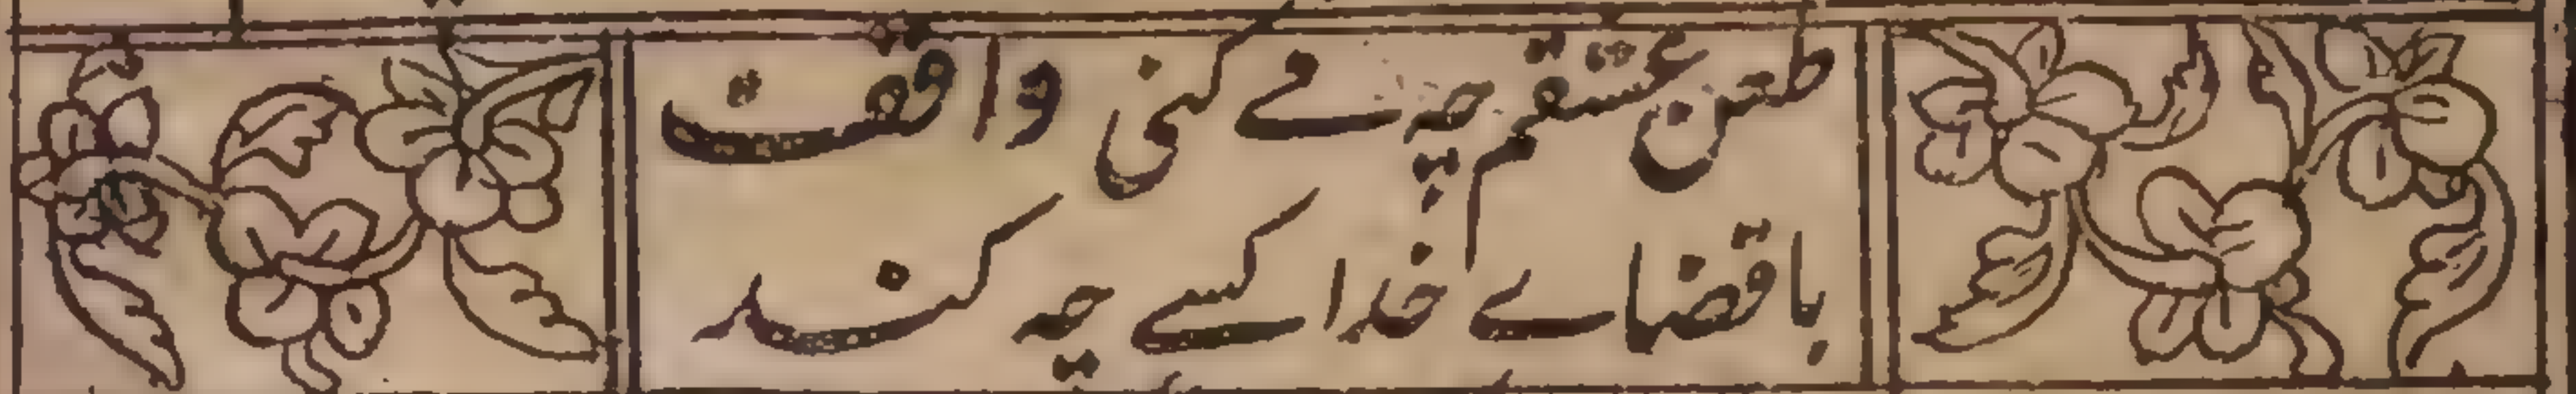 طعن عشقم چه مے کنی واقف
با قضاے خدا کسے چه کند